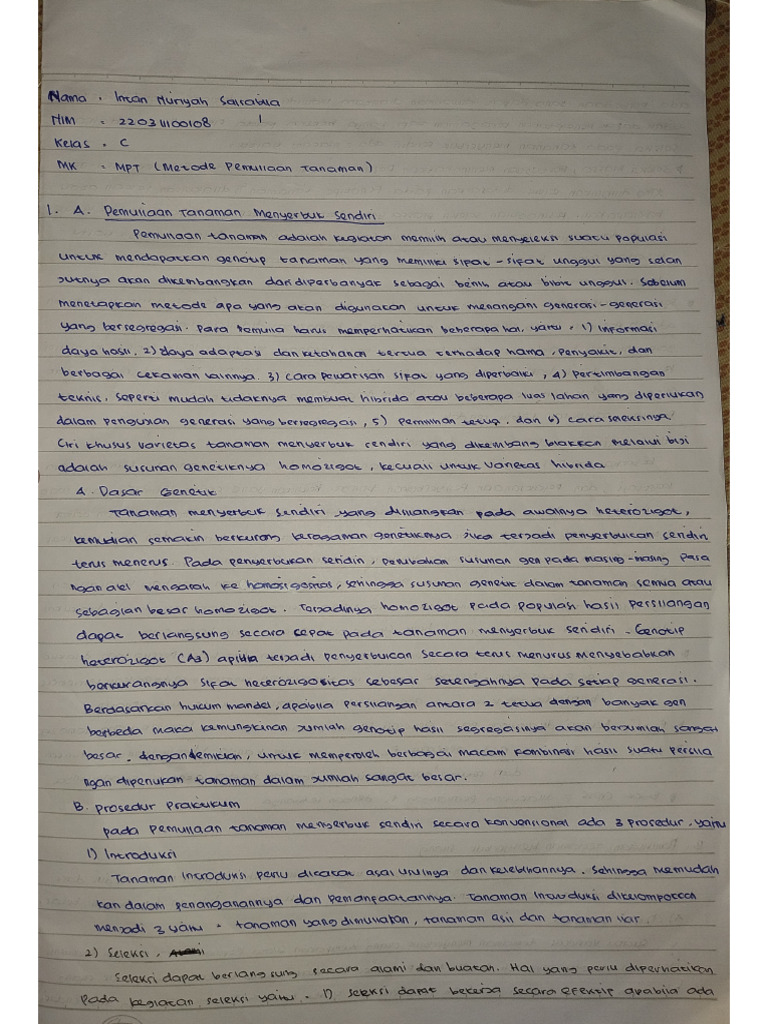 Nama : Intan Nuriyah Salsabila
NIM : 22031100108
Kelas : C
MK : MPT (Metode Pemuliaan Tanaman)
1. A. Pemuliaan Tanaman Menyerbuk Sendiri
Pemuliaan tanaman adalah kegiatan memilih atau menyeleksi suatu populasi
untuk mendapatkan genotip tanaman yang memiliki sipat-sipat unggul yang selan
jutnya akan dikembangkan dan diperbanyak sebagai benih atau bibit unggul. Sebelum
menetapkan metode apa yang akan digunakan untuk menangani generasi-generasi
yang bersegregasi. Para Pemulia harus memperhatikan beberapa hal, yaitu : 1) Informasi
daya hasil, 2) daya adaptasi dan ketahanan tertua terhadap hama, penyakit, dan
berbagai cekaman lainnya. 3) cara pewarisan sipat yang diperbaiki, 4) Pertimbangan
teknis, seperti mudah tidaknya membuat hibrida atau beberapa luas lahan yang diperlukan
dalam pengujian generasi yang bersegregasi, 5) pemilihan tetua, dan 6) cara seleksinya
Ciri khusus varietas tanaman menyerbuk sendiri yang dikembang biakkan melalui biji
adalah susunan genetiknya homozigot, kecuali untuk varietas hibrida
A. Dasar Genetik
Tanaman menyerbuk sendiri yang disilangkan pada awalnya heterozigot,
kemudian semakin berkurang keragaman genetiknya jika terjadi penyerbukan sendiri
terus menerus. Pada penyerbukan sendiri, perubahan susunan gen pada masing-masing pasa
ngan alel mengarah ke homosigositas, sehingga susunan genetik dalam tanaman semua atau
sebagian besar homozigot. Terjadinya homozigot pada populasi hasil persilangan
dapat berlangsung secara cepat pada tanaman menyerbuk sendiri. Genotip
heterozigot (Aa) apabila terjadi penyerbukan secara terus menurus menyebabkan
berkurangnya sifat heterozigositas sebesar setengahnya pada setiap generasi.
Berdasarkan hukum mandel, apabila persilangan antara 2 tetua dengan banyak gen
berbeda maka kemungkinan jumlah genotip hasil segregasinya akan berjumlah sangat
besar. dengan demikian, untuk memperoleh berbagai macam kombinasi hasil suatu persila
ngan diperlukan tanaman dalam jumlah sangat besar.
B. Prosedur Praktikum
pada pemuliaan tanaman menyerbuk sendiri secara konvensional ada 3 prosedur, yaitu
1) Introduksi
Tanaman introduksi perlu dicatat asal usulnya dan kelebihannya. Sehingga memudah
kan dalam penanganannya dan pemanfaatannya. Tanaman Introduksi dikelompokkan
menjadi 3 yaitu : tanaman yang dimuliakan, tanaman asli dan tanaman liar.
2) Seleksi,
Seleksi dapat berlangsung secara alami dan buatan. Hal yang perlu diperhatikan
Pada kegiatan seleksi yaitu : 1) seleksi dapat bekerja secara efektip apabila ada